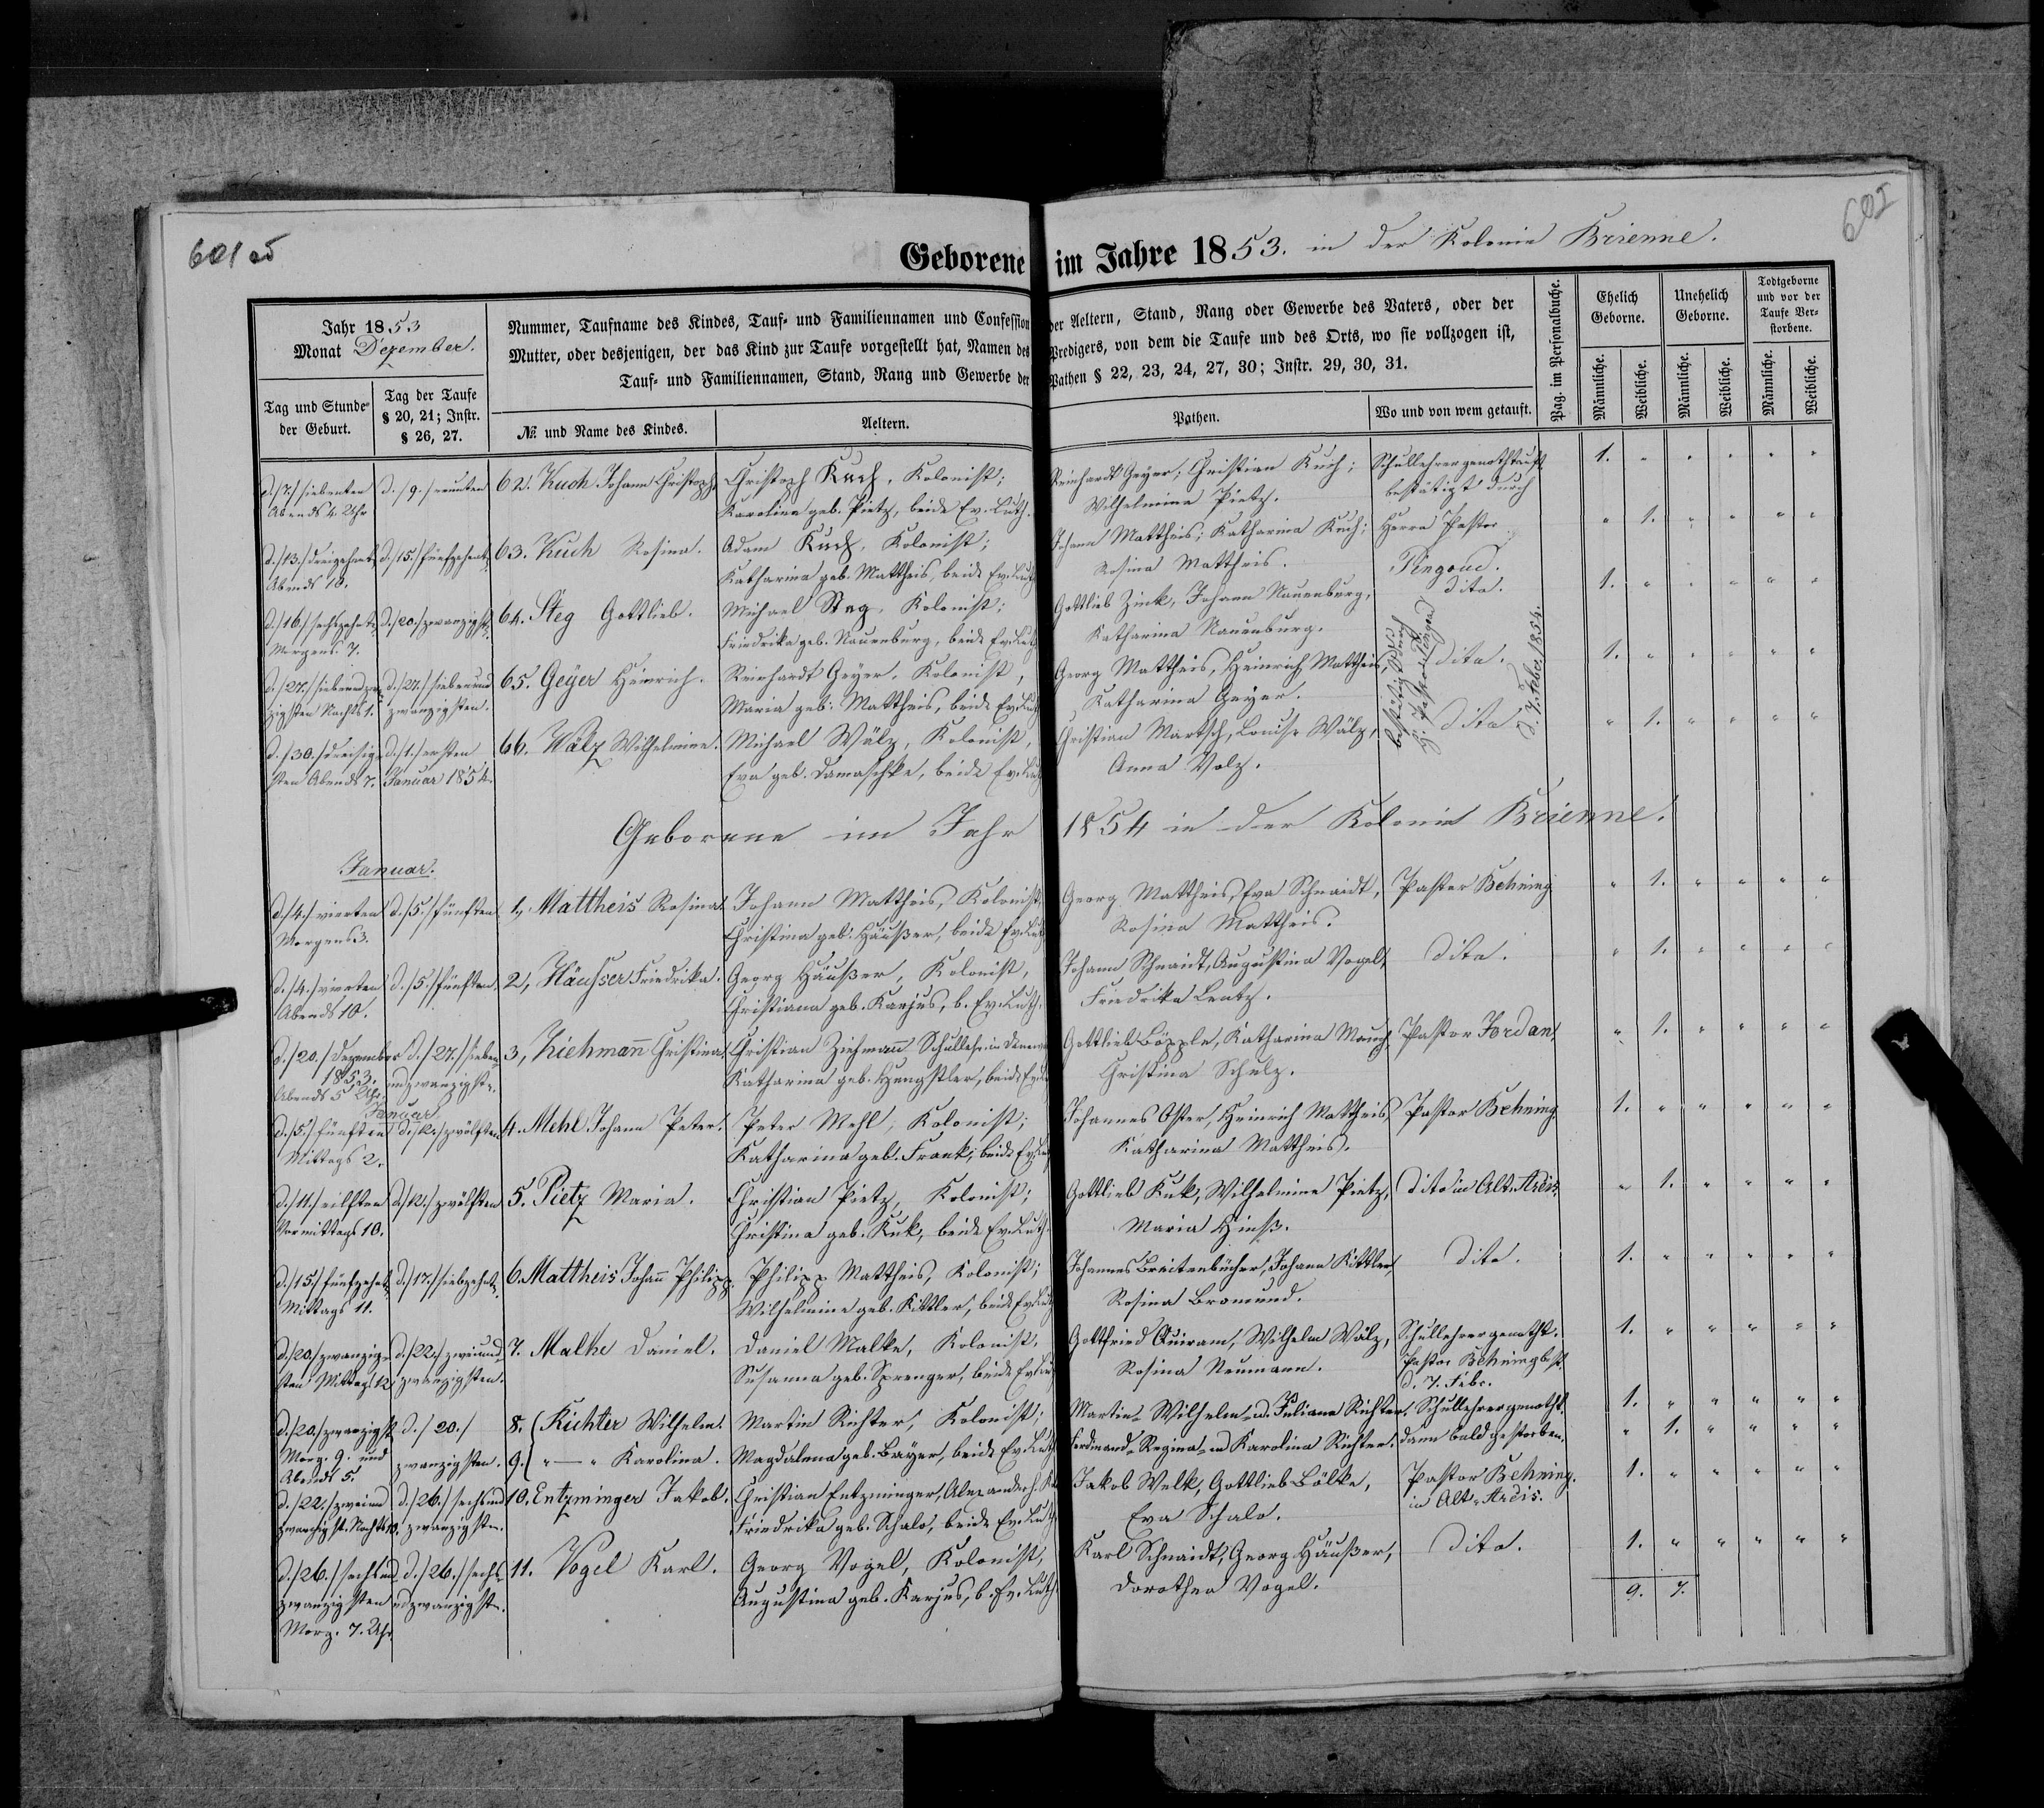 601 об
602
Geborene im Jahre 1853. in der Kolonie Brienne.
Jahr 1853
Monat Dezember.
Tag und Stunde der Geburt.
Tag der Taufe § 20, 21; Instr. § 26, 27.
Nummer, Taufname des Kindes, Tauf- und Familiennamen und Confession der Aeltern, Stand, Rang oder Gewerbe des Vaters, oder der
Mutter, oder desjenigen, der das Kind zur Taufe vorgestellt hat, Namen des Predigers, von dem die Taufe und des Orts, wo sie vollzogen ist,
Tauf- und Familiennamen, Stand, Rang und Gewerbe der Pathen § 22, 23, 24, 27, 30; Instr. 29, 30, 31.
№ und Name des Kindes.
Aeltern.
Pathen.
Wo und von wem getauft.
Pag. im Personalbuche.
Ehelich Geborne.
Unehelich Geborne.
Todtgeborne und vor der Taufe Verstorbene.
Männliche. Weibliche. Männliche. Weibliche. Männliche. Weibliche.
d./7./ siebenten d./9./ neunten 62. Kuch Johann Christoph Christoph Kuch, Kolonist; Reinhardt Geyer; Christian Kuch; Schullehrer genothtauft 1. " " " " "
Abends 4. Uhr Karolina geb. Pietz, beide Ev. Luth. Wilhelmine Pietz. bestätigt durch
d./13./ dreizehnt. d./15./ fünfzehnt. 63. Kuch Rosina. Adam Kuch, Kolonist; Johann Mattheis; Katharina Kuch; Herrn Pastor " 1. " " " "
Abends 10. Katharina geb. Mattheis, beide Ev. Luth Rosina Mattheis. Pingoud.
d./16./ sechzehnt. d./20./ zwanzigst. 64. Steg Gottlieb. Michael Steg, Kolonist; Gottlieb Zink, Johann Nauenburg, dito. 1. " " " " "
Morgens 7. Friedrika geb. Nauenburg, beide Ev. Luth Katharina Nauenburg.
d./27./ siebenundzwan- d./27./ siebenund 65. Geyer Heinrich. Reinhardt Geyer, Kolonist, Georg Mattheis, Heinrich Mattheis, dito. 1. " " " " "
zigsten Nachts 1. zwanzigsten. Maria geb. Mattheis, beide Ev. Luth Katharina Geyer.
d./30./ dreisig- d./1./ ersten 66. Wälz Wilhelmine. Michael Wälz, Kolonist, Christian Martsch, Louise Wälz, dito. " 1. " " " "
sten Abends 7. Januar 1854. Eva geb. Damaschke, beide Ev. Luth Anna Volz.
bestätigt durch
H. Pastor Pingoud
d. 7. Febr. 1854.
Geborene im Jahr 1854 in der Kolonie Brienne.
Januar.
d./4./ vierten d./5./ fünften 1, Mattheis Rosina Johann Mattheis, Kolonist, Georg Mattheis, Eva Schnaidt, Pastor Behning " 1. " " " "
Morgens 3. Christina geb. Häußer, beide Ev. Luth Rosina Mattheis.
d./4./ vierten d./5./ fünften 2, Häusser Friedrika. Georg Häußer, Kolonist, Johann Schnaidt, Augustina Vogel, dito. " 1. " " " "
Abends 10. Christiana geb. Karjus, b. Ev. Luth. Friedrika Lentz.
d./20./ Dezember d./27./ sieben- 3, Ziehmann Christina Christian Ziehmann Schullehr. in Gottlieb Böpple, Katharina Mauch Pastor Jordan, " 1. " " " "
1853. undzwanzigst. Katharina geb. Hengstler, beide Ev. Christina Schulz.
Abends 5 Uhr.
Januar
d./5./ fünften d./12./ zwölften 4. Mehl Johann Peter. Peter Mehl, Kolonist; Johannes Oster, Heinrich Mattheis Pastor Behning 1. " " " " "
Mittags 2. Katharina geb. Frank, beide Ev. Luth Katharina Mattheis.
d./11./ eilften d./12./ zwölften 5. Pietz Maria. Christian Pietz, Kolonist; Gottlieb Kuk, Wilhelmine Pietz, dito in Alt-Arcis. " 1. " " " "
Vormittags 10. Christina geb. Kuk, beide Ev. Luth. Maria Hinß.
d./15./ fünfzehnt. d./17./ siebzehnt. 6. Mattheis Johann Philipp. Philipp Mattheis, Kolonist; Johannes Breitenbücher, Johann Kittler, dito. 1. " " " " "
Mittags 11. Wilhelmine geb. Kittler, beide Ev. Luth Rosina Bromund.
d./20./ zwanzig- d./22./ zweiund- 7. Malke Daniel. Daniel Malke, Kolonist, Gottfried Quiram, Wilhelm Wälz, Schullehrer genotht. 1. " " " " "
sten Mittags 12 zwanzigsten. Susanna geb. Sprenger, beide Ev. Luth Rosina Neumann. Pastor Behning best. d. 7. Febr.
d./20./ zwanzigst d./20./ 8. Richter Wilhelm. Martin Richter, Kolonist; Martin- Wilhelm- u. Juliana Richter. Schullehrer genotht. 1. " " " " "
Morg. 9. und zwanzigsten. 9. " — " Karolina. Magdalena geb. Bayer, beide Ev. Luth Ferdinand- Regina- u. Karolina Richter. dann bald gestorben. " 1. " " " "
Abends 5.
d./22./ zweiund d./26./ sechsund 10. Entzminger Jakob. Christian Entzminger, Alexanderh. Jakob Welk, Gottlieb Bölke, Pastor Behning. 1. " " " " "
zwanzigst. Nachts 10. zwanzigsten. Friedrika geb. Schalo, beide Ev. Luth Eva Schalo. in Alt-Arcis.
d./26./ sechsund d./26./ sechs- 11. Vogel Karl. Georg Vogel, Kolonist, Karl Schnaidt, Georg Häußer, dito. 1. " " " " "
zwanzigsten undzwanzigst. Augustina geb. Karjus, b. Ev. Luth. Dorothea Vogel. 9. 7.
Morg. 7. Uhr